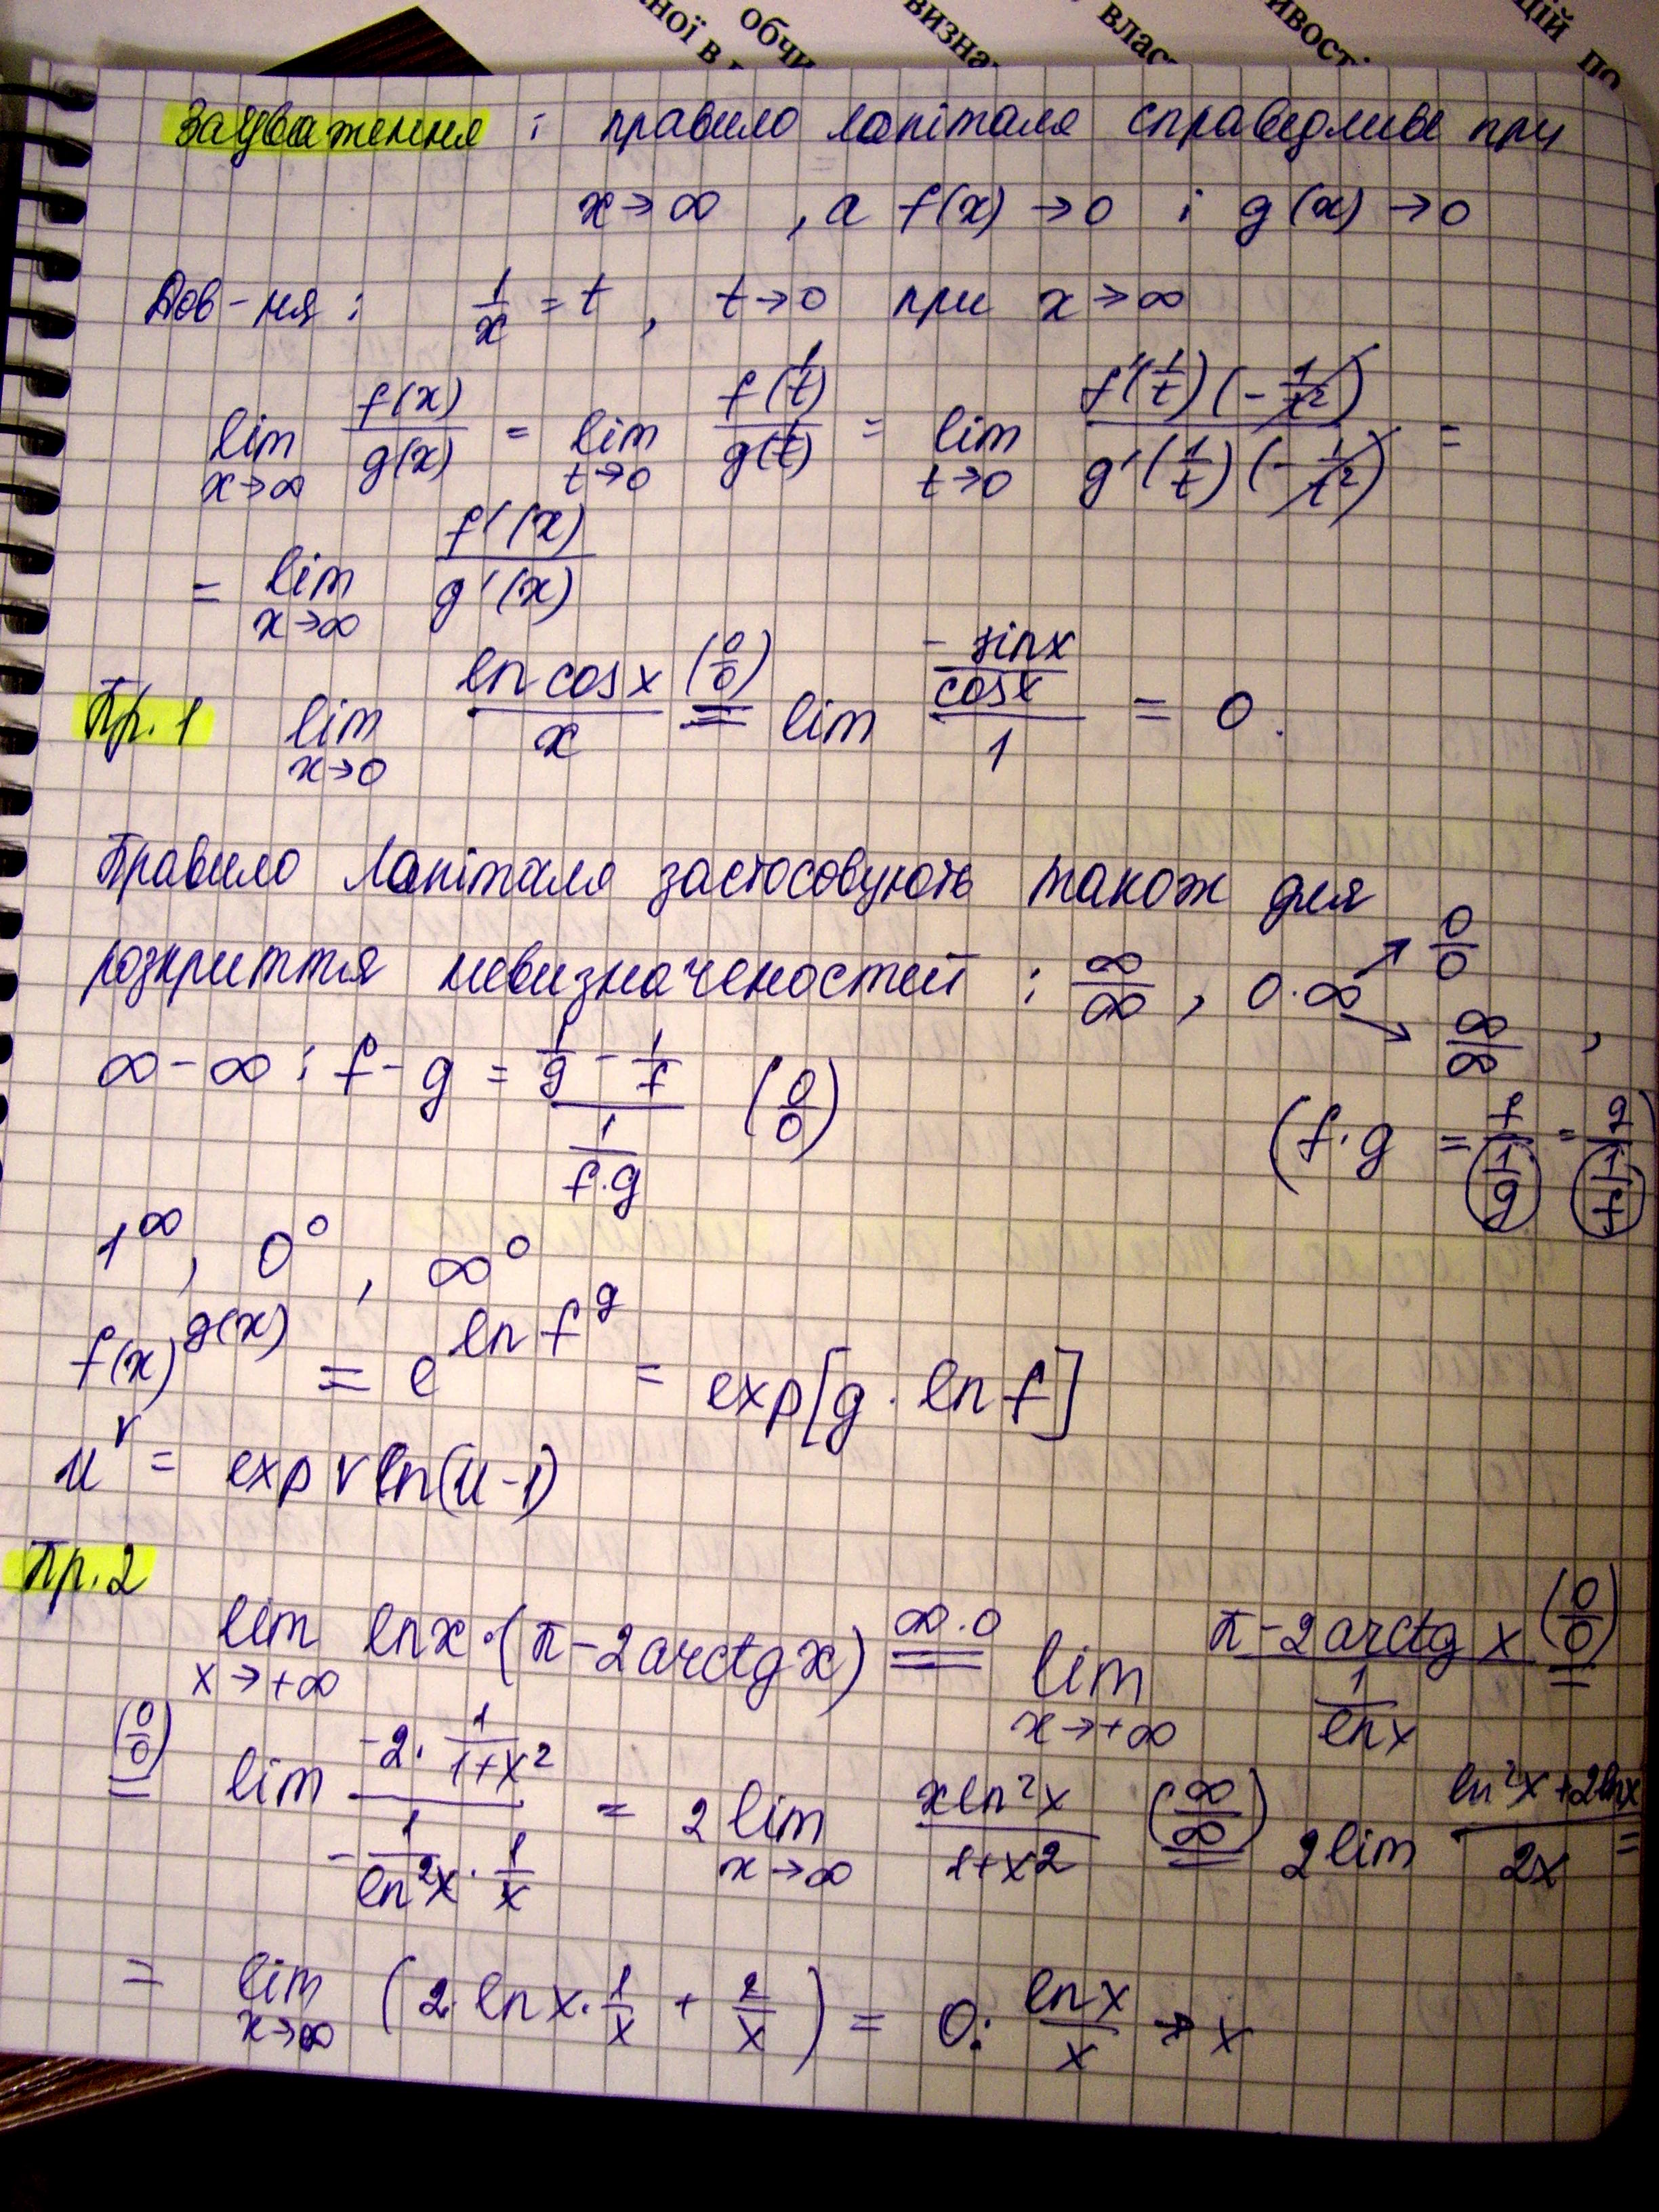 ної в
обчи
визна
влас
ивості
цій по
Зауваження : правило Лопіталя справедливе при
x→∞ , а f(x)→0 і g(x)→0
Дов-ня : 1/x = t , t→0 при x→∞
lim x→∞ f(x)/g(x) = lim t→0 f(1/t)/g(1/t) = lim t→0 f'(1/t)(-1/t²)/g'(1/t)(-1/t²) =
= lim x→∞ f'(x)/g'(x)
Пр.1 lim x→0 ln cosx/x (0/0)= lim (-sinx/cosx)/1 = 0.
Правило Лопіталя застосовують також для
розкриття невизначеностей : ∞/∞ , 0·∞ ↗ 0/0 ↘ ∞/∞ ,
∞-∞ : f-g = (1/g - 1/f)/(1/(f·g)) (0/0)
(f·g = f/(1/g) = g/(1/f))
1^∞ , 0^0 , ∞^0
f(x)^g(x) = e^(ln f^g) = exp[g·ln f]
u^v = exp v ln(u-1)
Пр.2
lim x→+∞ lnx·(π-2arctgx) ∞·0= lim x→+∞ (π-2arctg x)/(1/lnx) (0/0)=
(0/0)= lim (-2·1/(1+x²))/(-1/ln²x·1/x) = 2 lim x→∞ xln²x/(1+x²) (∞/∞)= 2lim (ln²x+2lnx)/2x =
= lim x→∞ (2·lnx·1/x + 2/x) = 0: lnx/x → x